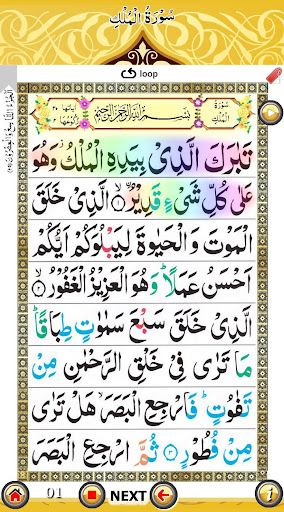 سُوْرَةُ الْمُلْكِ
loop
سُوْرَةُ الْمُلْكِ
بِسْمِ اللّٰهِ الرَّحْمٰنِ الرَّحِيْمِ
تَبٰرَكَ الَّذِيْ بِيَدِهِ الْمُلْكُ وَهُوَ
عَلٰى كُلِّ شَيْءٍ قَدِيْرُ ۝١ اۨلَّذِيْ خَلَقَ
الْمَوْتَ وَالْحَيٰوةَ لِيَبْلُوَكُمْ اَيُّكُمْ
اَحْسَنُ عَمَلًا ؕ وَهُوَ الْعَزِيْزُ الْغَفُوْرُ ۝٢
الَّذِيْ خَلَقَ سَبْعَ سَمٰوٰتٍ طِبَاقًا ؕ
مَا تَرٰى فِيْ خَلْقِ الرَّحْمٰنِ مِنْ
تَفٰوُتٍ ؕ فَارْجِعِ الْبَصَرَ ۙ هَلْ تَرٰى
مِنْ فُطُوْرٍ ۝٣ ثُمَّ ارْجِعِ الْبَصَرَ
01 NEXT i